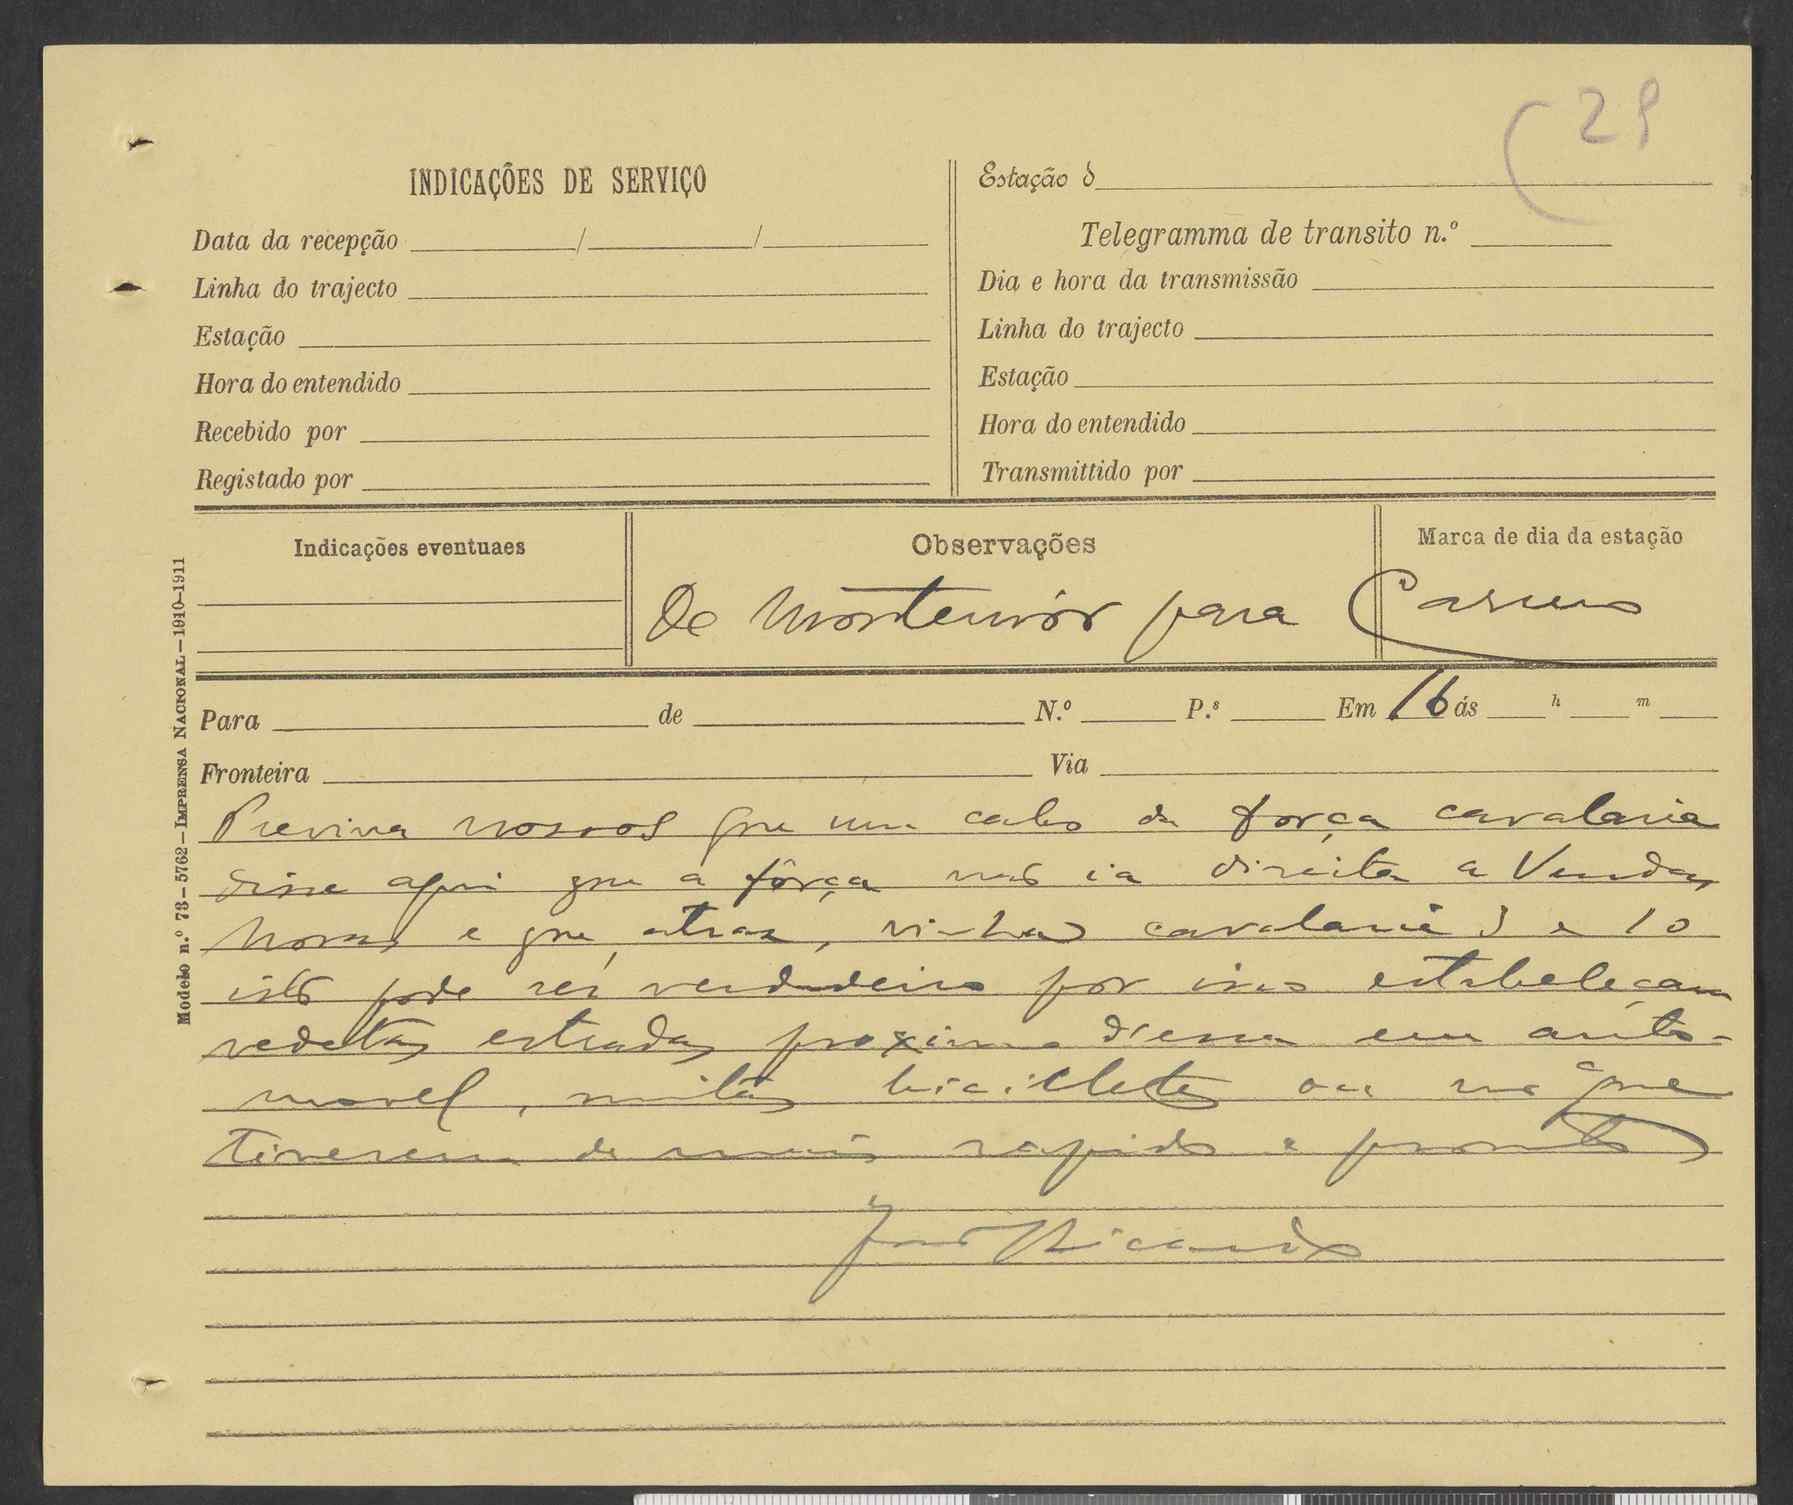 29
INDICAÇÕES DE SERVIÇO
Data da recepção / /
Linha do trajecto
Estação
Hora do entendido
Recebido por
Registado por
Estação d
Telegramma de transito n.º
Dia e hora da transmissão
Linha do trajecto
Estação
Hora do entendido
Transmittido por
Indicações eventuaes
Observações
Marca de dia da estação
De Montemór para
Para de N.º P.ˢ Em 16 ás h m
Fronteira Via
Previna nossos que um cabo da força cavalaria
disse aqui que a fôrça não ia direita a Vendas
Novas e que, atraz, vinha cavalaria e 10
isto pode ser verdadeiro por isso estabeleçam
vedetas estradas proximo d'essa em auto-
movel, bicicletes ou no que
tiverem de mais rapido e pronto
José Ricardo
Modelo n.º 73 — 5762 — IMPRENSA NACIONAL — 1910-1911